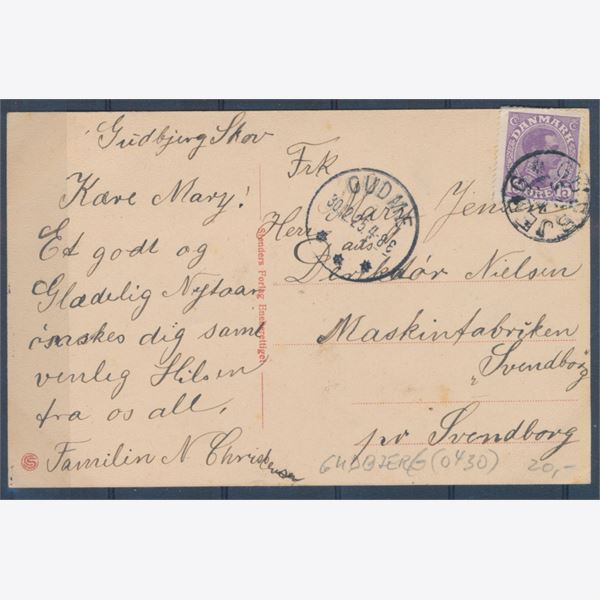 Gudbjerg Skov
Kære Mary!
Et godt og
Glædelig Nytaar
ønskes dig samt
venlig Hilsen
fra os all.
Familin N Christensen
Stenders Forlag Eneberettiget
Frk
Mary Jensen
Herr
Direktør Nielsen
Maskinfabriken
Svendborg
pr Svendborg
GUDME
30.12.25.4-8E
DANMARK
15 ØRE
GUDBJERG
GUDBJERG (0430)
20,-